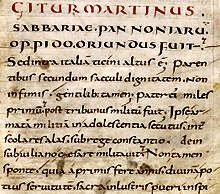 GITUR MARTINUS
SABBARIAE. PANNONIARU
OPPIDO. ORIUNDUS FUIT
Sed intra italia ticini altus e paren
tibus secundum saeculi dignitatem. Non
infimis. gentilib; tamen. pater miles
primu post tribunus militu fuit. Ipse ar
mata militia in adolescentia secutus. int
scolares alas. sub rege constantio. dein
sub iuliano caesare militavit. Non tamen
sponte. quia a primis fere annis. divina po
tius servitute. sacra inlustris pueri inspi